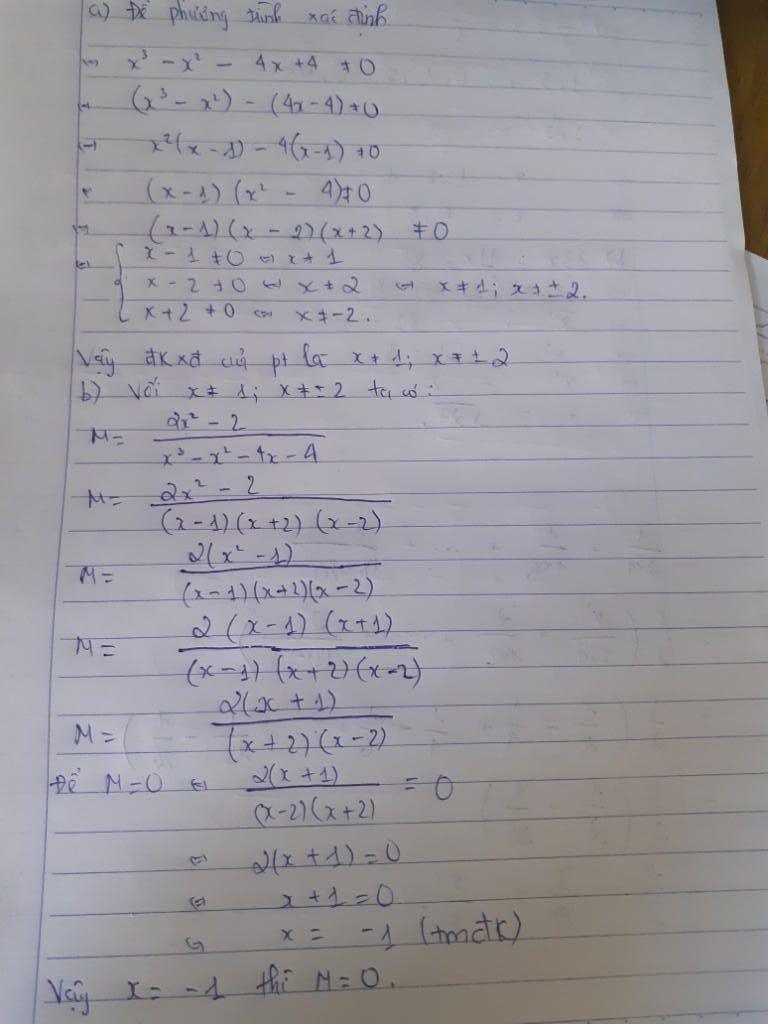 a) Để phương trình xác định
⇔ x³ - x² - 4x + 4 ≠ 0
⇔ (x³ - x²) - (4x - 4) ≠ 0
⇔ x²(x - 1) - 4(x - 1) ≠ 0
⇔ (x - 1)(x² - 4) ≠ 0
⇔ (x - 1)(x - 2)(x + 2) ≠ 0
⇔ { x - 1 ≠ 0 ⇔ x ≠ 1
x - 2 ≠ 0 ⇔ x ≠ 2 ⇔ x ≠ 1; x ≠ ± 2.
x + 2 ≠ 0 ⇔ x ≠ -2.
Vậy đkxđ của pt là x ≠ 1; x ≠ ± 2
b) Với x ≠ 1; x ≠ ± 2 ta có:
M = (2x² - 2)/(x³ - x² - 4x - 4)
M = (2x² - 2)/((x - 1)(x + 2)(x - 2))
M = 2(x² - 1)/((x - 1)(x + 2)(x - 2))
M = 2(x - 1)(x + 1)/((x - 1)(x + 2)(x - 2))
M = 2(x + 1)/((x + 2)(x - 2))
Để M = 0 ⇔ 2(x + 1)/((x - 2)(x + 2)) = 0
⇔ 2(x + 1) = 0
⇔ x + 1 = 0
⇔ x = -1 (tmđk)
Vậy x = -1 thì M = 0.